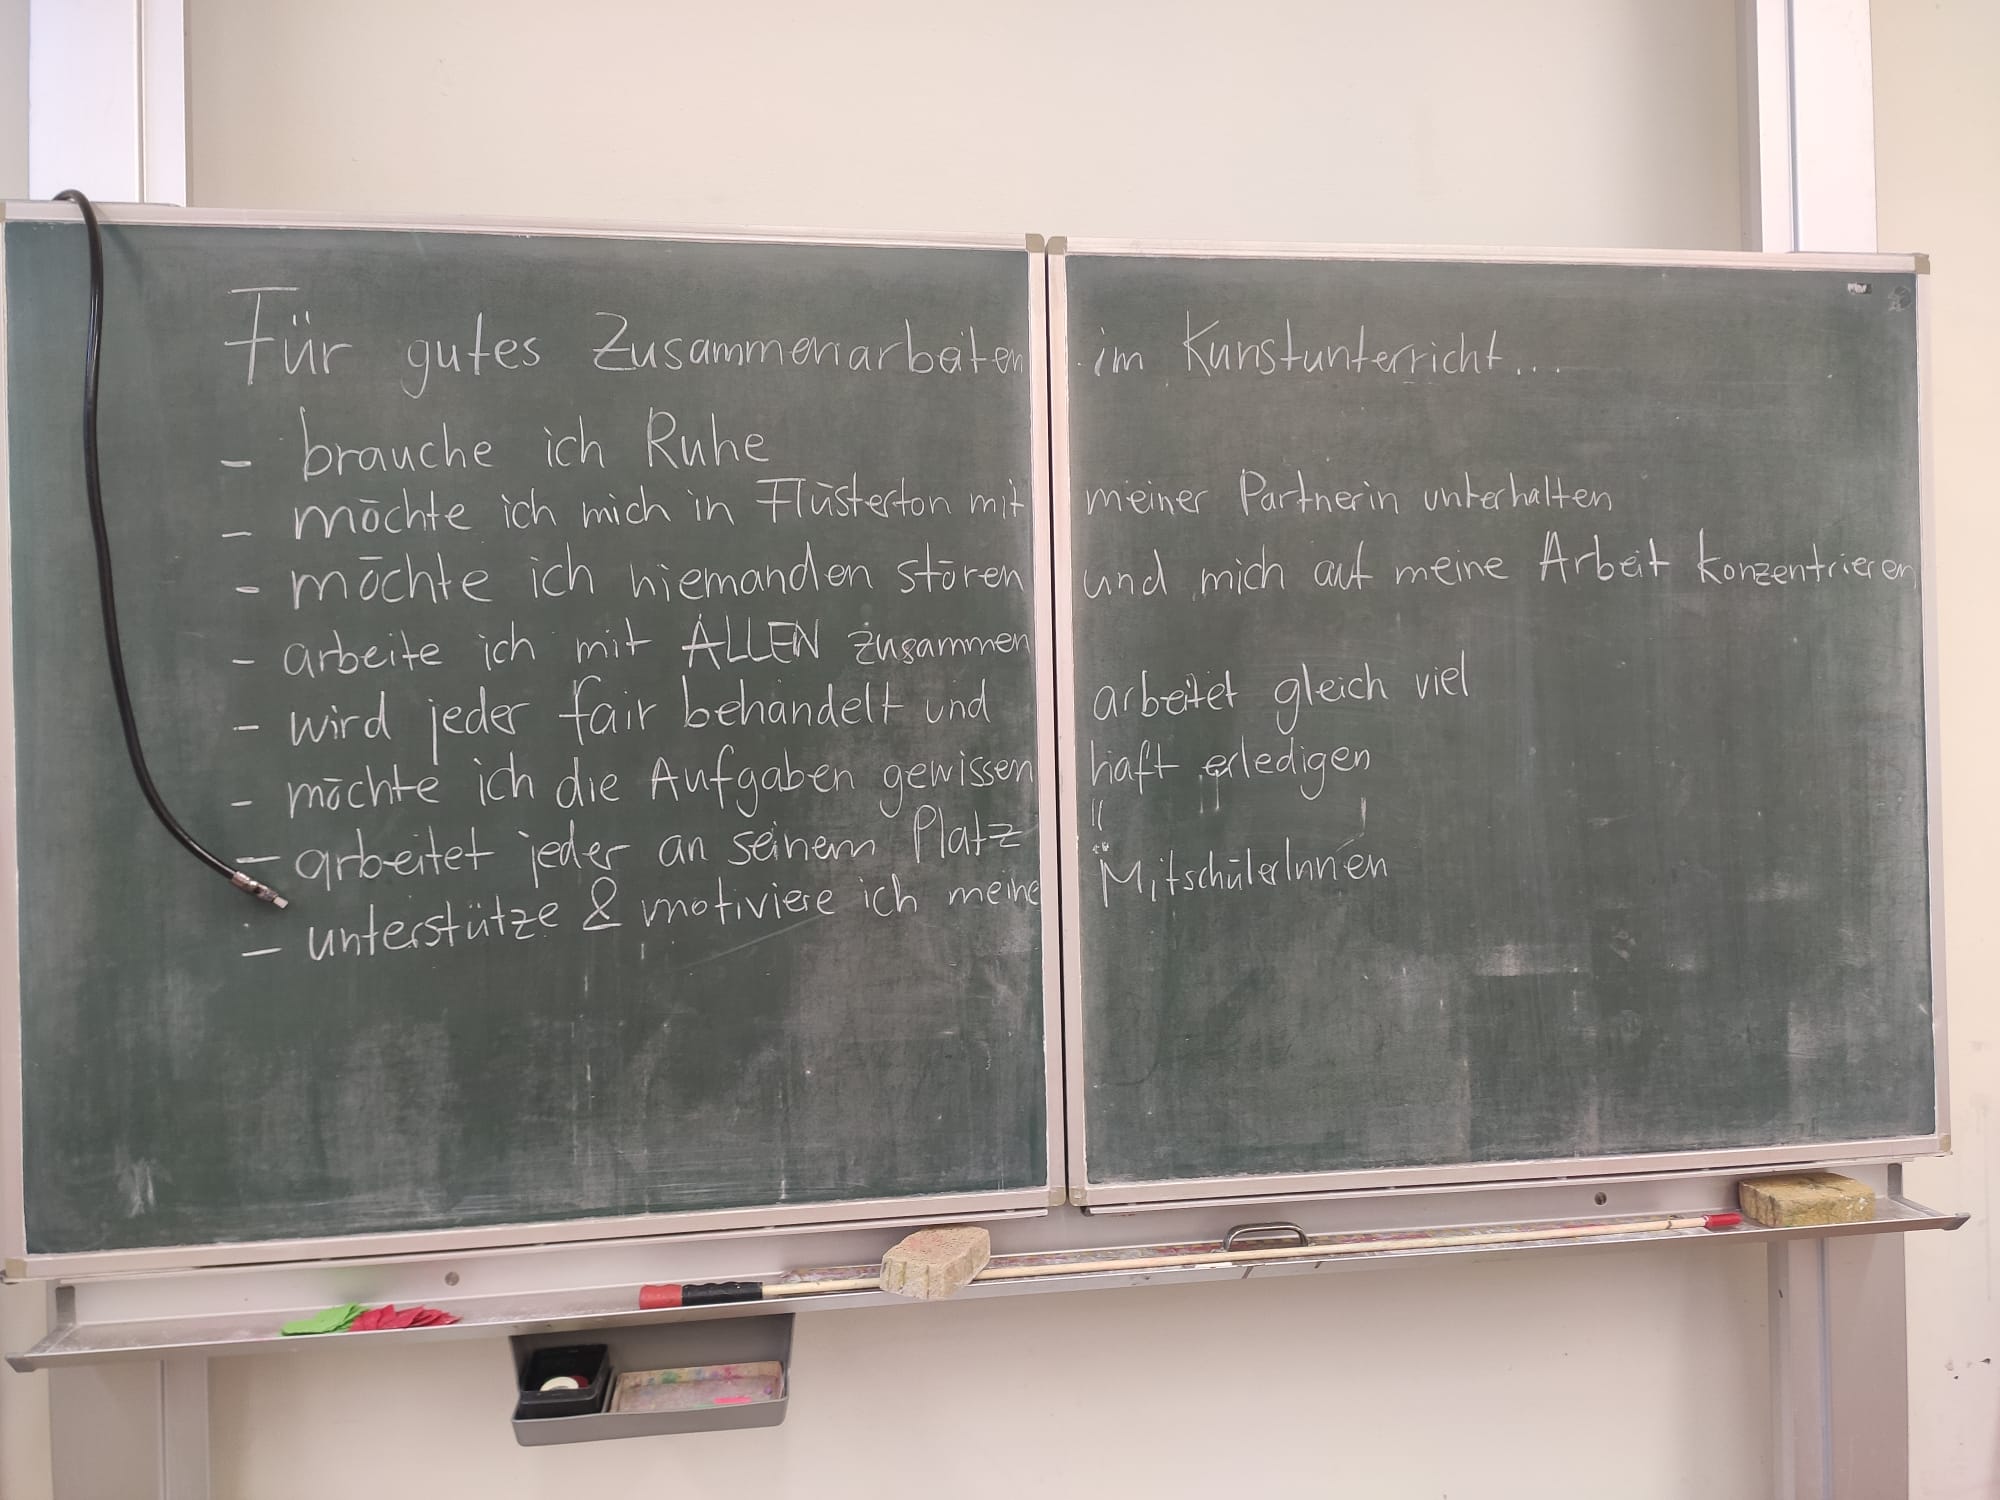 Für gutes Zusammenarbeiten im Kunstunterricht...
- brauche ich Ruhe
- möchte ich mich in Flüsterton mit meiner Partnerin unterhalten
- möchte ich niemanden stören und mich auf meine Arbeit konzentrieren
- arbeite ich mit ALLEN zusammen
- wird jeder fair behandelt und arbeitet gleich viel
- möchte ich die Aufgaben gewissenhaft erledigen
- arbeitet jeder an seinem Platz
- unterstütze & motiviere ich meine MitschülerInnen